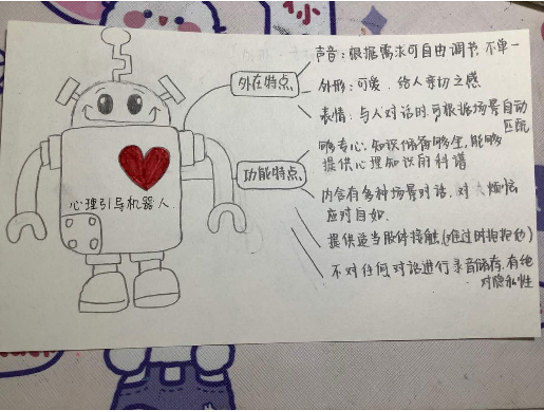 声音：根据需求可自由调节，不单一
外在特点
外形：可爱、给人亲切之感
表情：与人对话时，可根据场景自动
匹配
够专心，知识储备够全，能够
提供心理知识的科谱
功能特点
心理引导机器人
内含有多种场景对话，对烦恼
应对自如.
提供适当肢体接触(难过时抱抱你)
不对任何对话进行录音储存，有绝
对隐私性